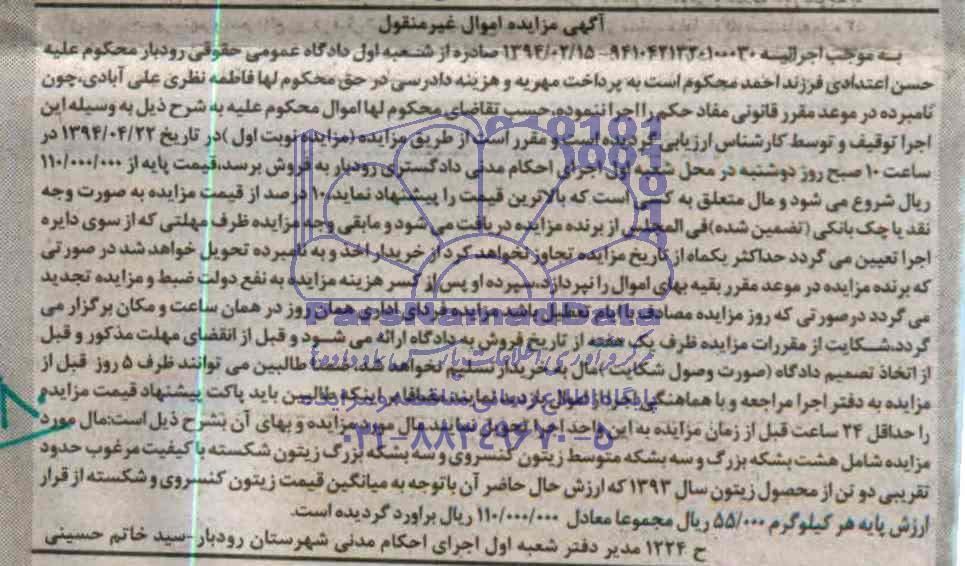 آگهی مزایده اموال غیرمنقول
به موجب اجرائیه ۹۴۱۰۴۲۱۳۲۰۱۰۰۰۳۰-۱۳۹۴/۰۲/۱۵ صادره از شعبه اول دادگاه عمومی حقوقی رودبار محکوم علیه
حسن اعتدادی فرزند احمد محکوم است به پرداخت مهریه و هزینه دادرسی در حق محکوم لها فاطمه نظری علی آبادی، چون
نامبرده در موعد مقرر قانونی مفاد حکم را اجرا ننموده، حسب تقاضای محکوم لها اموال محکوم علیه به شرح ذیل به وسیله این
اجرا توقیف و توسط کارشناس ارزیابی گردیده است و مقرر است از طریق مزایده (مزایده نوبت اول) در تاریخ ۱۳۹۴/۰۴/۲۲ در
ساعت ۱۰ صبح روز دوشنبه در محل شعبه اول اجرای احکام مدنی دادگستری رودبار به فروش برسد، قیمت پایه از ۱۱۰/۰۰۰/۰۰۰
ریال شروع می شود و مال متعلق به کسی است که بالاترین قیمت را پیشنهاد نماید، ۱۰ درصد از قیمت مزایده به صورت وجه
نقد یا چک بانکی (تضمین شده) فی المجلس از برنده مزایده دریافت می شود و مابقی وجه مزایده ظرف مهلتی که از سوی دایره
اجرا تعیین می گردد حداکثر یکماه از تاریخ مزایده تجاوز نخواهد کرد از خریدار اخذ و به نامبرده تحویل خواهد شد در صورتی
که برنده مزایده در موعد مقرر بقیه بهای اموال را نپردازد، سپرده او پس از کسر هزینه مزایده به نفع دولت ضبط و مزایده تجدید
می گردد درصورتی که روز مزایده مصادف با ایام تعطیل باشد مزایده فردای اداری همان روز در همان ساعت و مکان برگزار می
گردد. شکایت از مقررات مزایده ظرف یک هفته از تاریخ فروش به دادگاه ارائه می شود و قبل از انقضای مهلت مذکور و قبل
از اتخاذ تصمیم دادگاه (صورت وصول شکایت) مال به خریدار تسلیم نخواهد شد، ضمنا طالبین می توانند ظرف ۵ روز قبل از
مزایده به دفتر اجرا مراجعه و با هماهنگی اجرا از اموال بازدید نمایند. مضافا بر اینکه طالبین باید پاکت پیشنهاد قیمت مزایده
را حداقل ۲۴ ساعت قبل از زمان مزایده به این واحد اجرا تحویل نمایند. مال مورد مزایده و بهای آن بشرح ذیل است: مال مورد
مزایده شامل هشت بشکه بزرگ و سه بشکه متوسط زیتون کنسروی و سه بشکه بزرگ زیتون شکسته با کیفیت مرغوب حدود
تقریبی دو تن از محصول زیتون سال ۱۳۹۳ که ارزش حال حاضر آن با توجه به میانگین قیمت زیتون کنسروی و شکسته از قرار
ارزش پایه هر کیلوگرم ۵۵/۰۰۰ ریال مجموعا معادل ۱۱۰/۰۰۰/۰۰۰ ریال براورد گردیده است.
ح ۱۲۲۴ مدیر دفتر شعبه اول اجرای احکام مدنی شهرستان رودبار-سید خاتم حسینی
ParsNamadData
۰۲۱-۸۸۳۴۹۶۷۰-۵